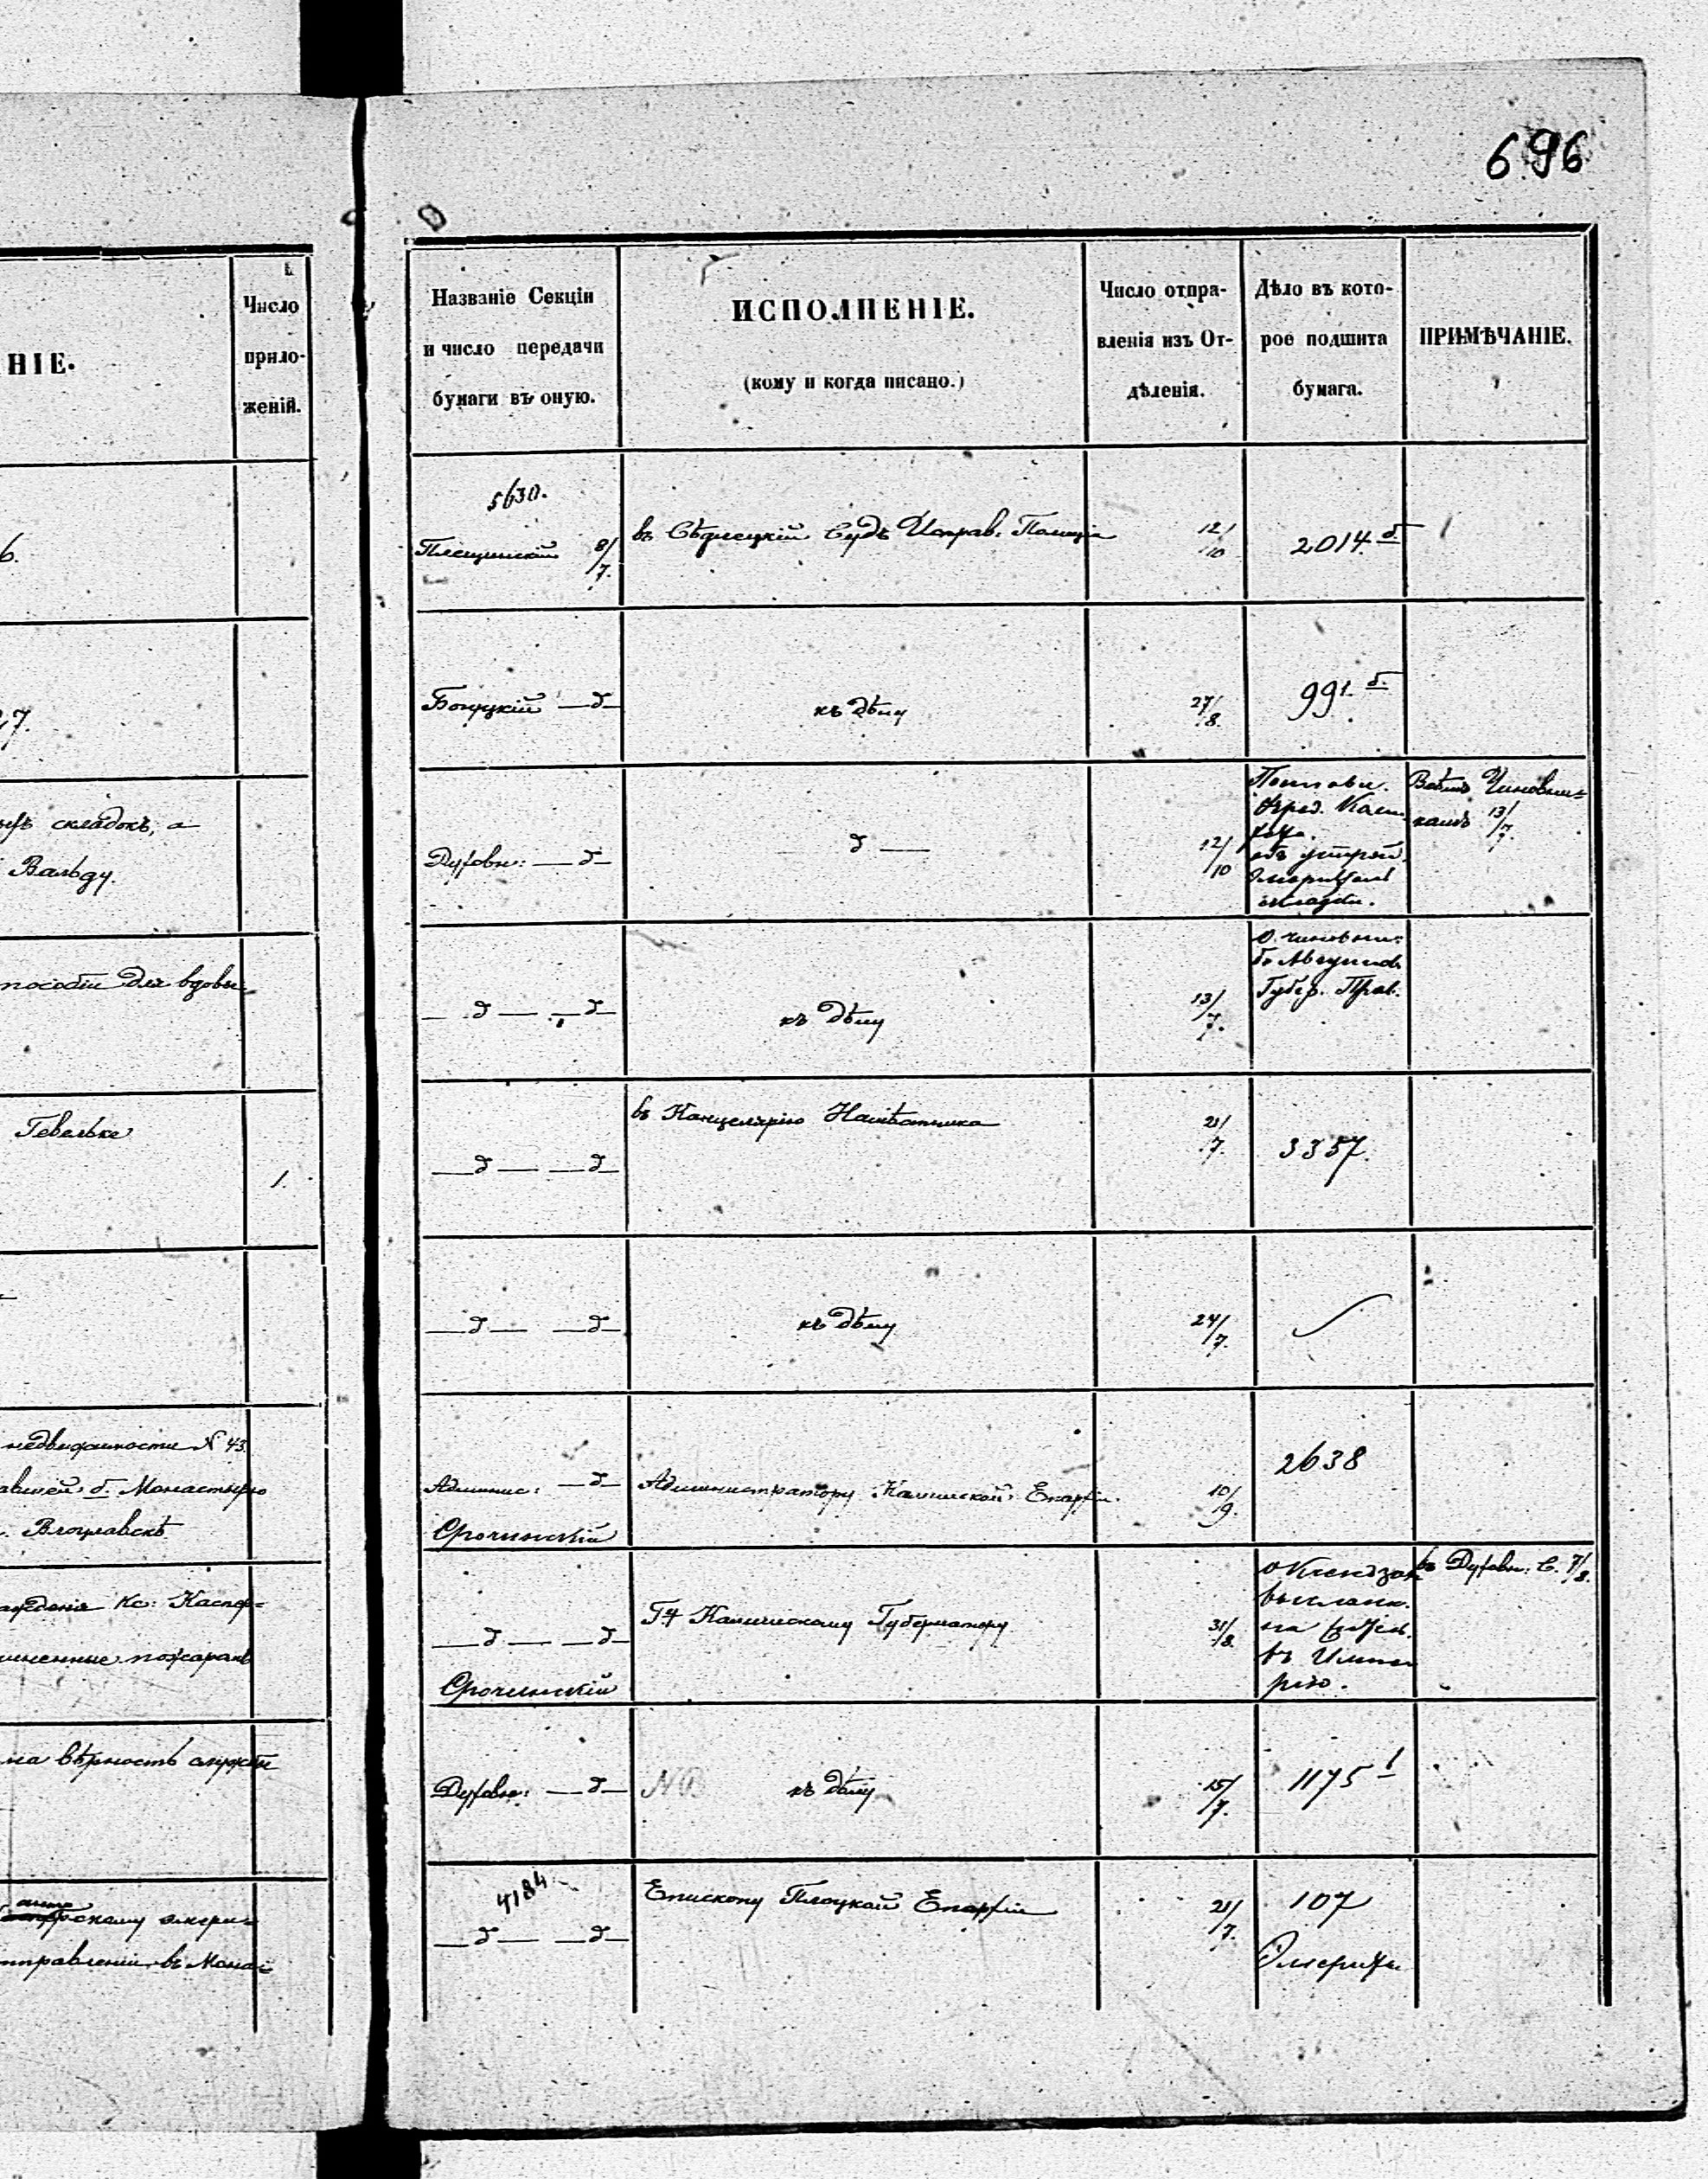 696
НІЕ.
Число
прило-
женій.
6.
7.
складокъ, а
Вальду.
пособіи для вдовы
Гевельке
1.
недвижимости N 43.
Монастырю
Влоцлавскѣ
Кс: Каспер=
пожарамъ
на вѣрность службы
скому эмери=
въ Мона=
Названіе Секціи
и число передачи
бумаги въ оную.
ИСПОЛНЕНІЕ.
(кому и когда писано.)
Число отпра-
вленія изъ От-
дѣленія.
Дѣло въ кото-
рое подшита
бумага.
ПРИМѢЧАНІЕ.
5630.
8/7.
въ Сѣдлецкій Судъ Исправ. Полиціи
12/10
2014 б.
д
къ дѣлу
27/8.
991. б.
Духовн: — д —
— д —
12/10
эмеритал
складки.
Всѣмъ Чиновни=
камъ 13/7.
— д — — д —
къ дѣлу
13/7.
О чиновни:
Губер. Прав.
— д — — д —
въ Канцелярію Намѣстника
21/7.
3357.
— д — — д —
къ дѣлу
24/7.
Админис: — д —
Срочинскій
Администратору Калишской Епархіи.
10/9.
2638
— д — — д —
Срочинскій
Гну Калишскому Губернатору
31/8.
о Ксендзах
выслан.
на жител.
въ Импе
рію.
въ Духовн: С. 7/8.
Духовн: — д —
NB.
къ дѣлу
15/7.
1175
4184
— д — — д —
Епископу Плоцкой Епархіи
21/7.
107
Эмериты